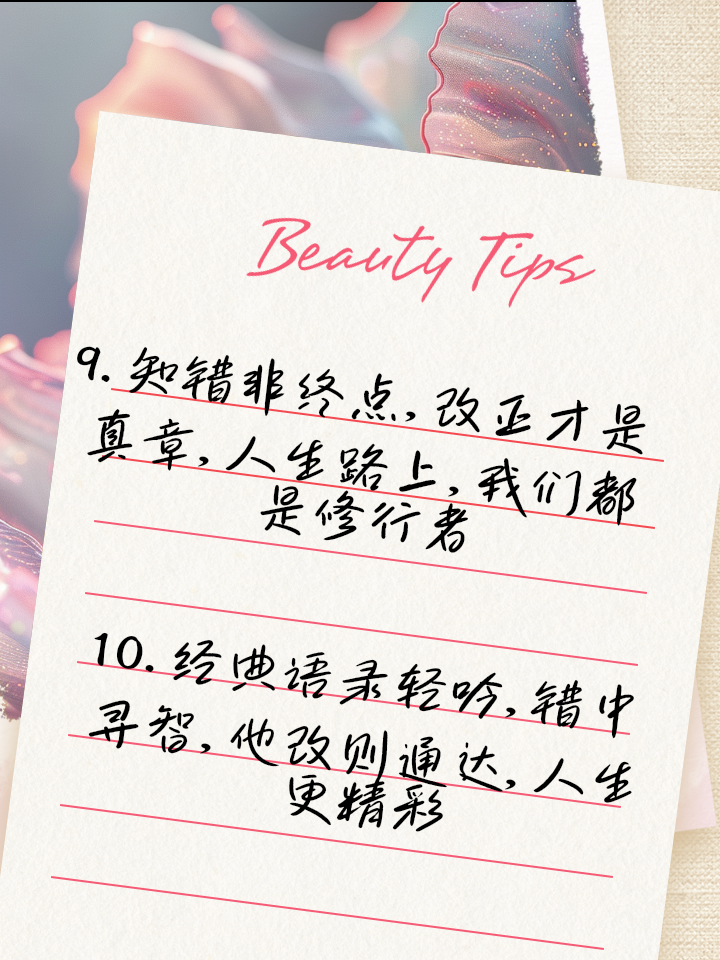 Beauty Tips
9. 知错非终点, 改正才是
真章, 人生路上, 我们都
是修行者
10. 经典语录轻吟, 错中
寻智, 他改则通达, 人生
更精彩